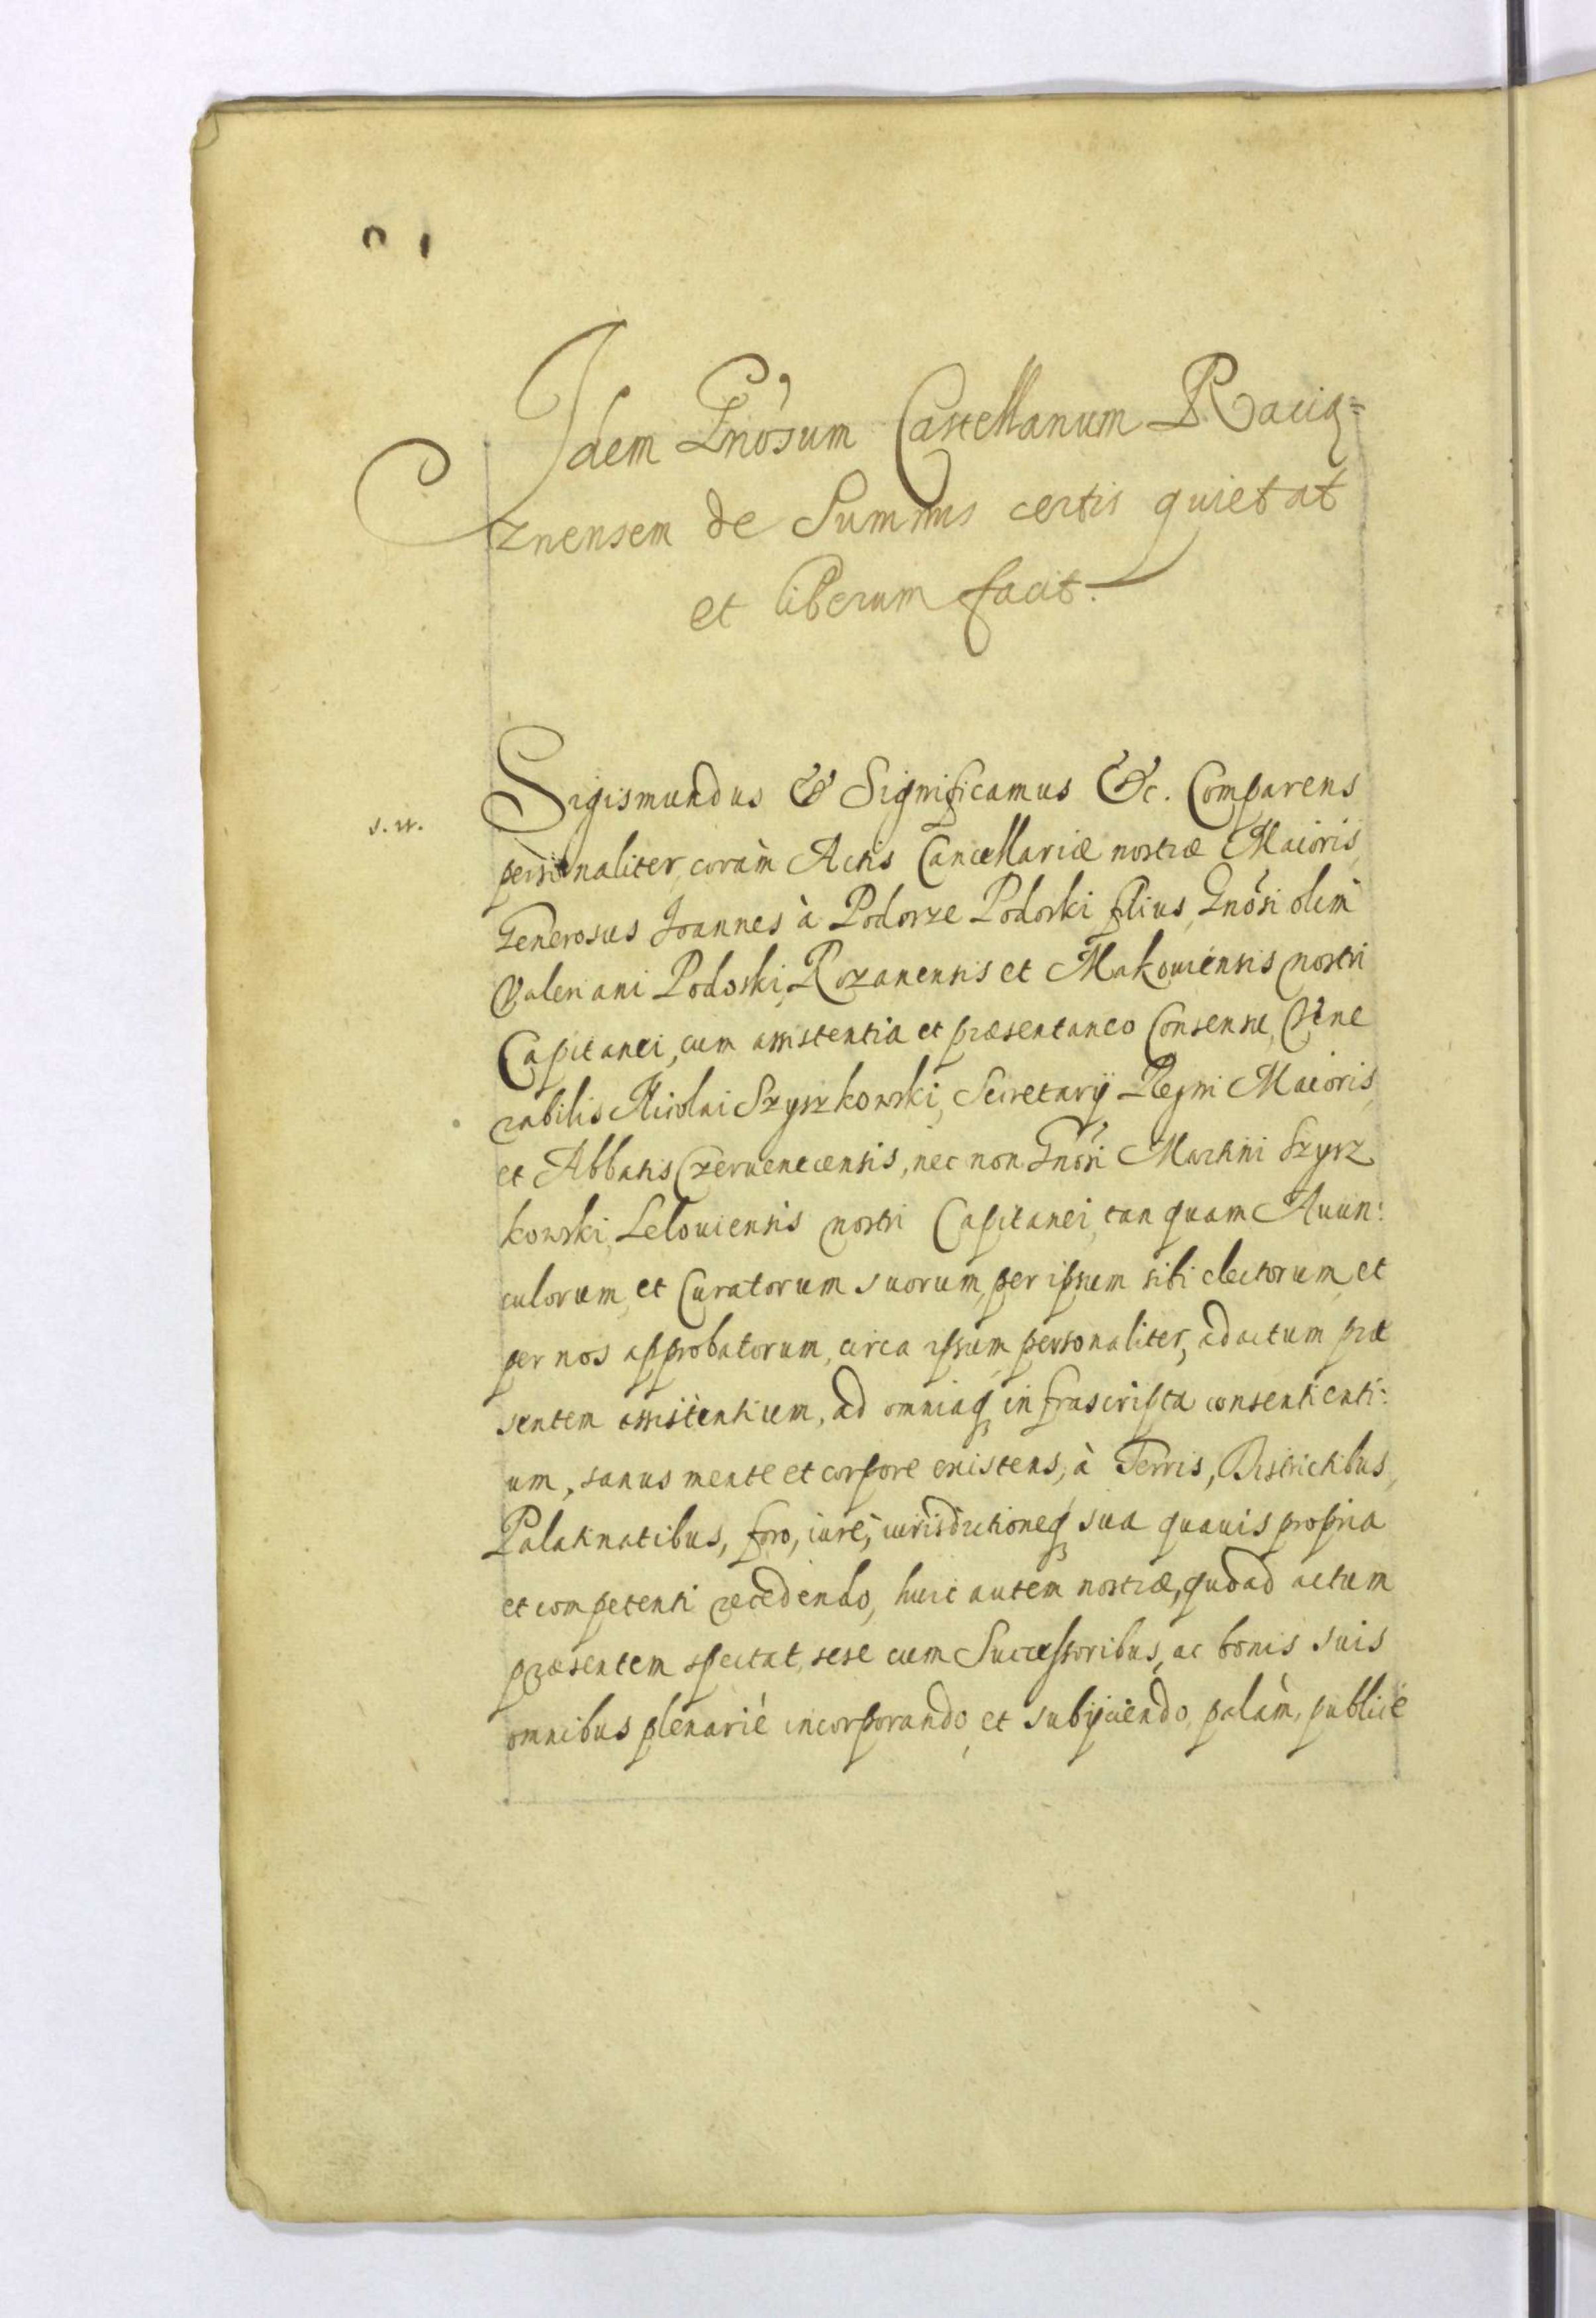 Idem Gnosum Castellanum Racią=
znensem de Summis certis quietat
et liberum facit.
Sigismundus & Significamus &c. Comparens
personaliter, coràm Actis Cancellariæ nostræ Maioris,
Generosus Joannes à Podorze Podorski filius, Gnosi olim
Valeriani Podoski, Rozanensis et Makouiensis nostri
Capitanei, cum assistentia et præsentaneo Consensu, Vene
rabilis Nicolai Szyszkowski, Secretarij Regni Maioris,
et Abbatis Czeruenecensis, nec non Gnosi Martini Szysz
kowski, Lelouiensis nostri Capitanei, tanquam Auun:
culorum, et Curatorum suorum, per ipsum sibi electorum, et
per nos approbatorum, circa ipsum personaliter, ad actum præ
sentem assistentium, ad omniaq; infrascripta consentienti:
um, sanus mente et corpore existens, à Terris, Districtibus,
Palatinatibus, foro, iure, iurisdictioneq; sua quauis propria
et competenti recedendo, huic autem nostræ, quoad actum
præsentem spectat, sese cum Successoribus, ac bonis suis
omnibus plenariè incorporando, et subijciendo, palàm, publicè
s. w.